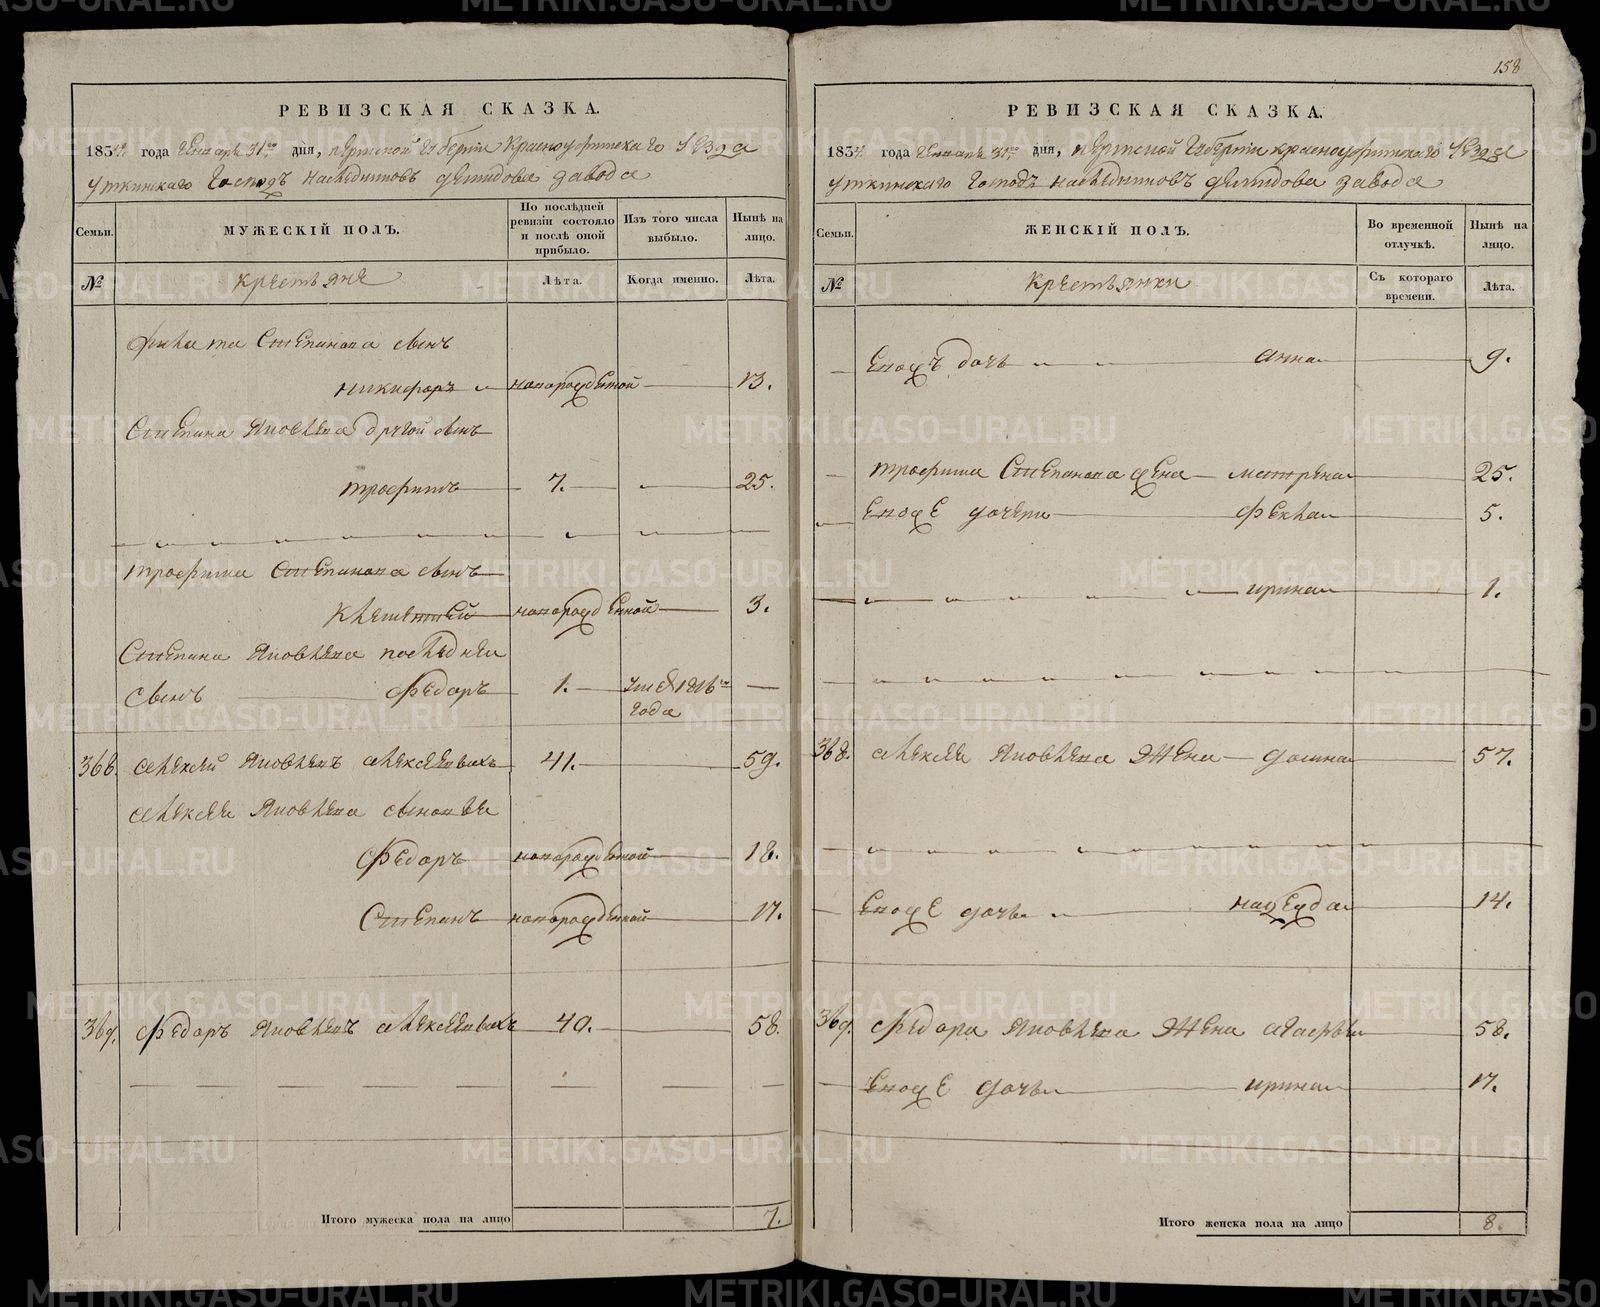 158
РЕВИЗСКАЯ СКАЗКА.
1834 года Генваря 31го дня, Пермской Губернии Красноуфимскаго Уѣзда
Уткинскаго Господъ Наслѣдниковъ Демидова завода
Семьи.
МУЖЕСКІЙ ПОЛЪ.
По послѣдней ревизіи состояло и послѣ оной прибыло.
Изъ того числа выбыло.
Нынѣ на лицо.
№
Крестьяне
Лѣта.
Когда именно.
Лѣта.
Степанова сынъ
Никифоръ новорожденной 13.
Степана Яковлева другой сынъ
Трофимъ 7. 25.
Трофима Степанова сынъ
новорожденной 3.
Степана Яковлева последней
сынъ Федоръ 1. 1816го
года
368. Алексей Яковлевъ 41. 59.
Алексея Яковлева сыновья
Федоръ новорожденной 18.
Степанъ новорожденной 17.
369. Федоръ Яковлевъ 40. 58.
Итого мужеска пола на лицо 7.
РЕВИЗСКАЯ СКАЗКА.
1834 года Генваря 31го дня, Пермской Губернии Красноуфимскаго Уѣзда
Уткинскаго Господъ Наслѣдниковъ Демидова завода
Семьи.
ЖЕНСКІЙ ПОЛЪ.
Во временной отлучкѣ.
Нынѣ на лицо.
№
Крестьянки
Съ котораго времени.
Лѣта.
дочь Анна 9.
Трофима Степанова жена Матрена 25.
Его же дочери Фекла 5.
Ирина 1.
368. Алексея Яковлева жена 57.
Его же дочь Надежда 14.
369. Федора Яковлева жена Агафья 58.
Его же дочь Ирина 17.
Итого женска пола на лицо 8.
METRIKI.GASO-URAL.RU